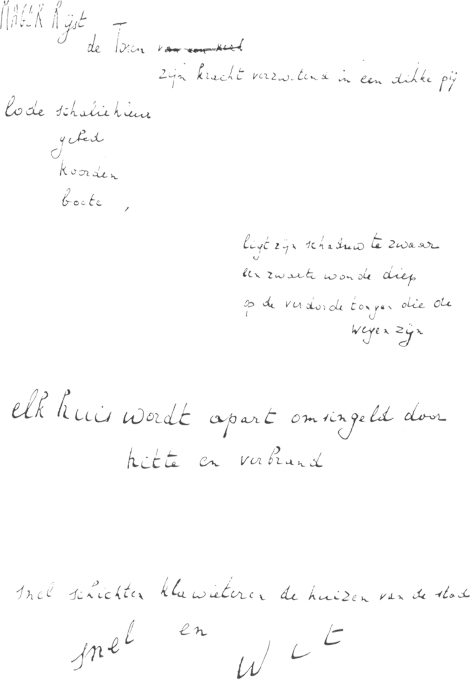 MAGER Rijst
de Toren van een kerk
zijn kracht verzwetend in een dikke pij
lode schaliehien
gebed
koorden
boete ,
ligt zijn schaduw te zwaar
een zwarte wonde diep
op de verdorde tongen die de
wegen zijn
elk huis wordt apart omsingeld door
hitte en verbrand
snel schichten klawieteren de huizen van de stad
snel en wit